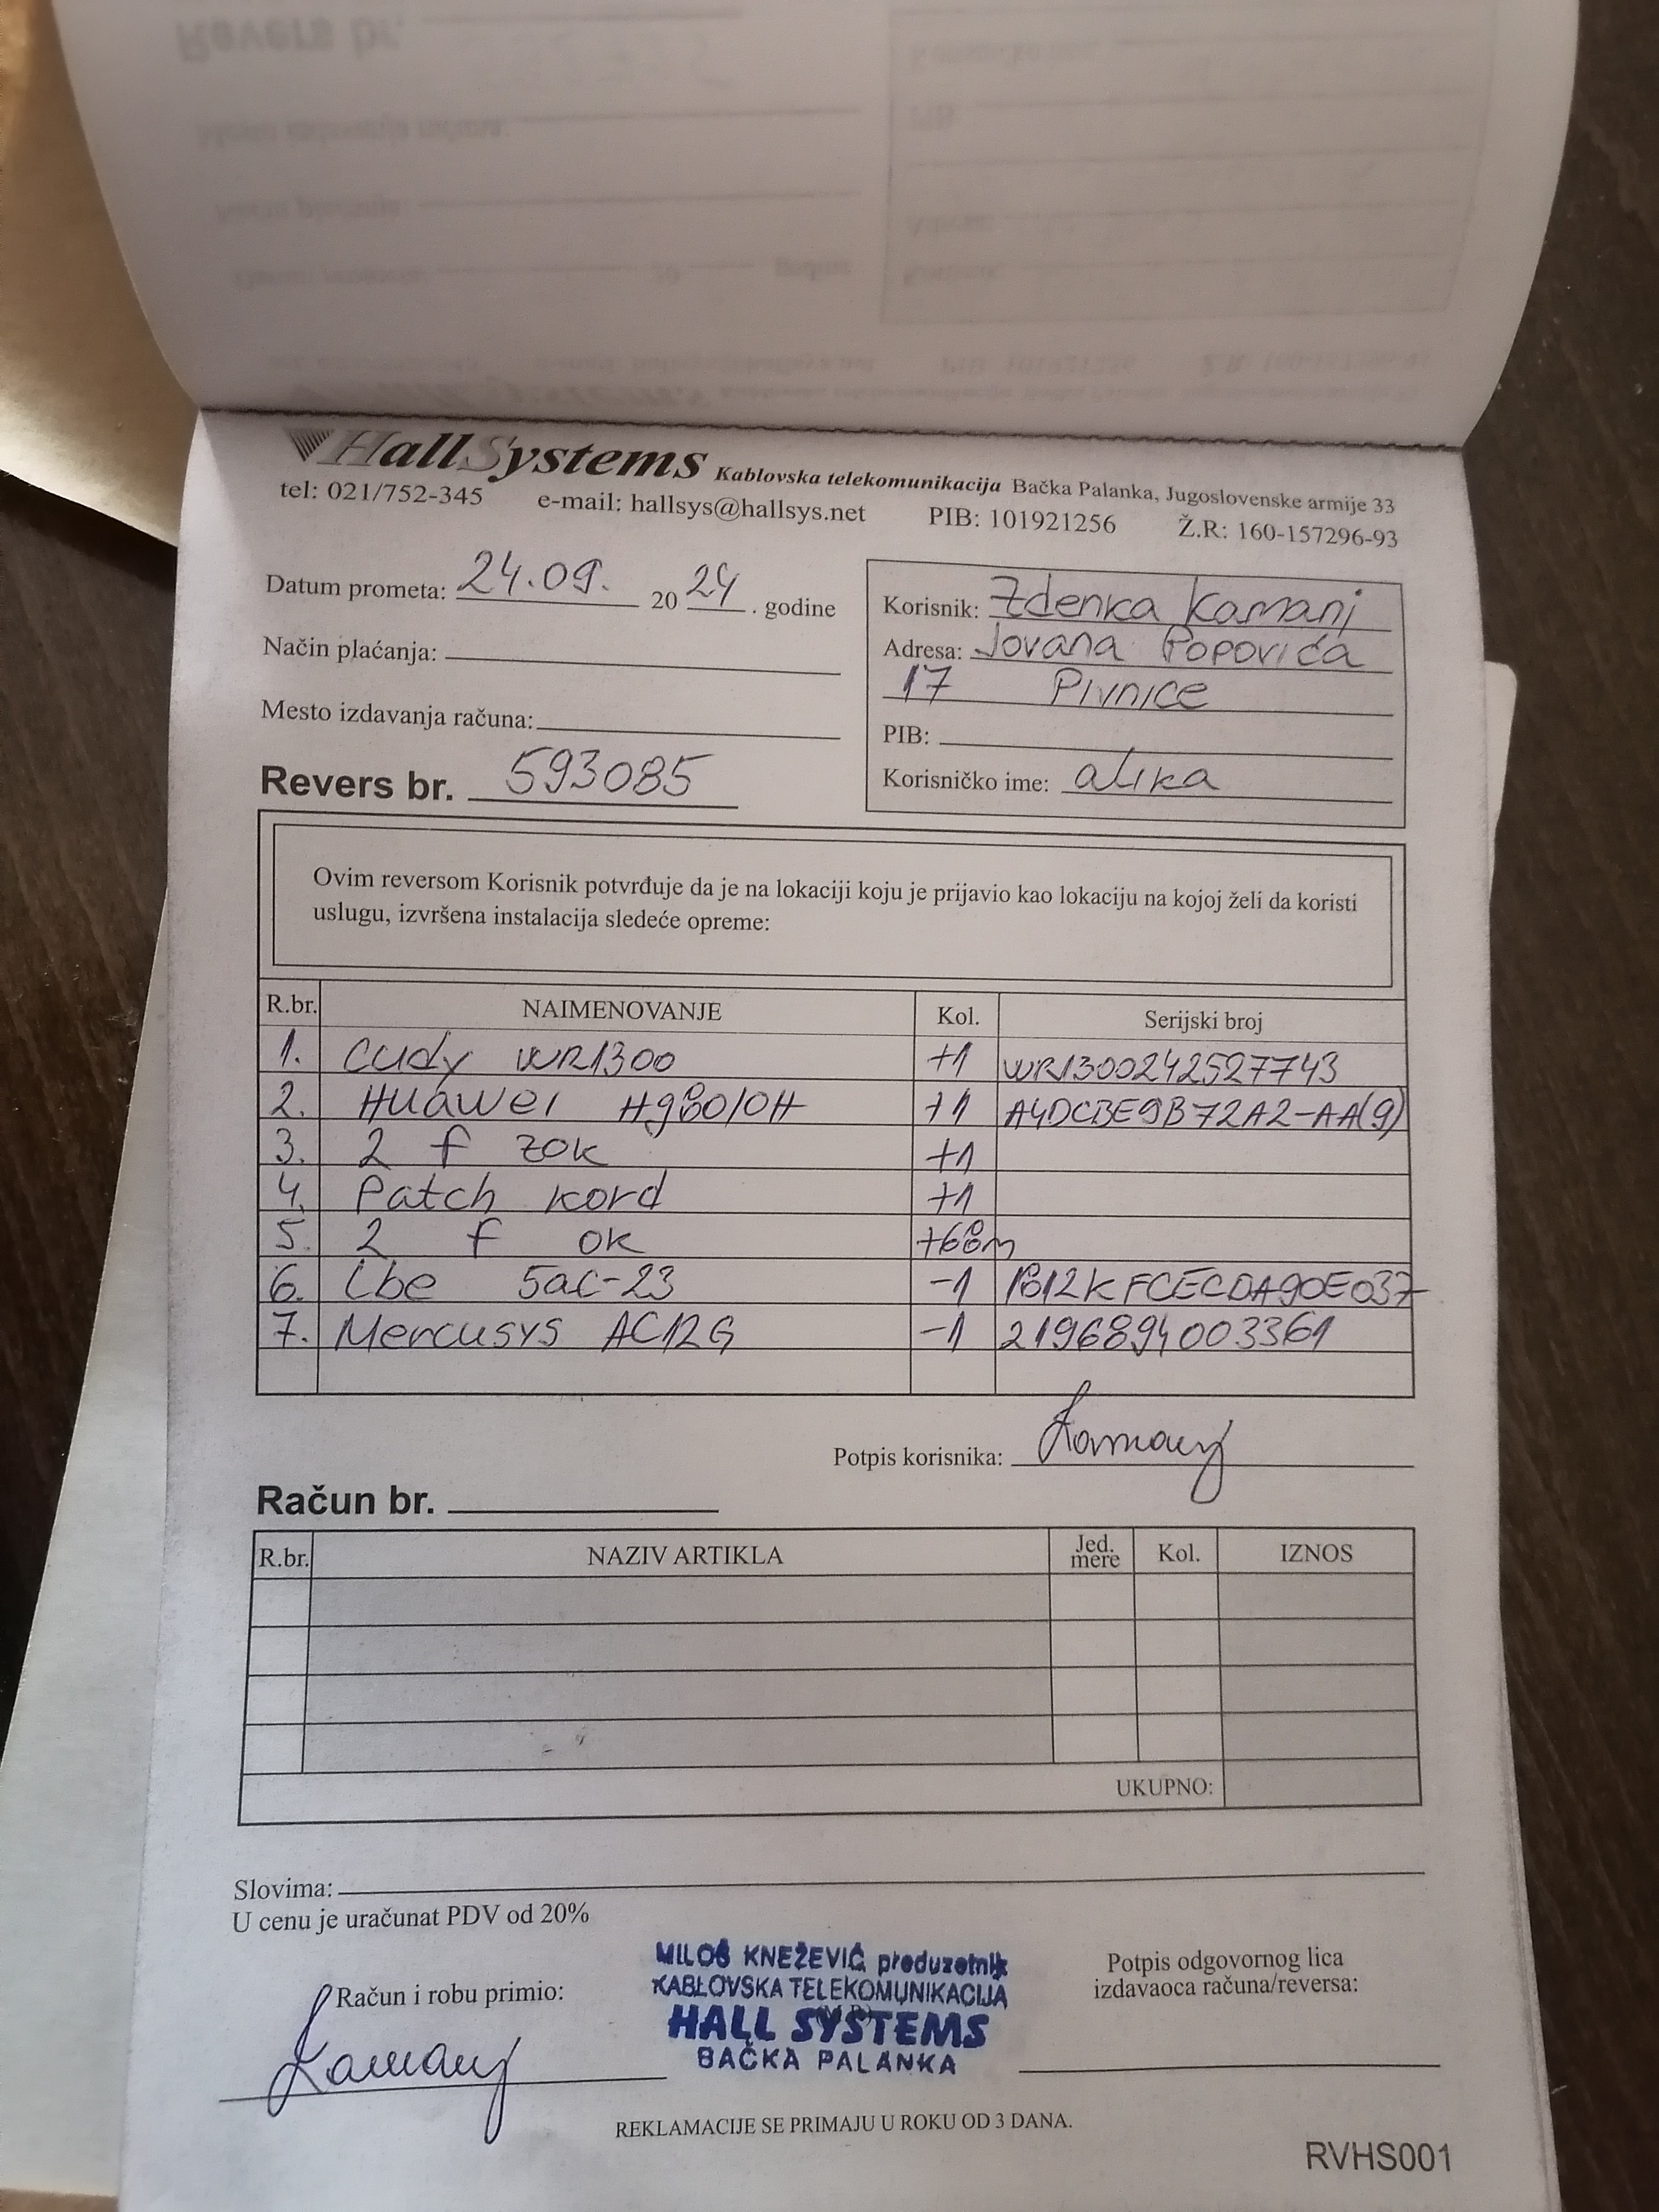 HallSystems Kablovska telekomunikacija Bačka Palanka, Jugoslovenske armije 33
tel: 021/752-345 e-mail: hallsys@hallsys.net PIB: 101921256 Ž.R: 160-157296-93
Datum prometa: 24.09. 2024. godine
Način plaćanja:
Mesto izdavanja računa:
Revers br. 593085
Korisnik: Zdenka Kamanj
Adresa: Jovana Popovića
17 Pivnice
PIB:
Korisničko ime: alika
Ovim reversom Korisnik potvrđuje da je na lokaciji koju je prijavio kao lokaciju na kojoj želi da koristi
uslugu, izvršena instalacija sledeće opreme:
R.br. NAIMENOVANJE Kol. Serijski broj
1. Cudy WR1300 +1 WR1300242527743
2. Huawei Hg8010H +1 A4DCBE9B72A2-AA(9)
3. 2 f zok +1
4. Patch kord +1
5. 2 f ok +68m
6. Lbe 5ac-23 -1 1812KFCECDA90E037
7. Mercusys AC12G -1 2196894003361
Potpis korisnika: Kamanj
Račun br.
R.br. NAZIV ARTIKLA Jed. mere Kol. IZNOS
UKUPNO:
Slovima:
U cenu je uračunat PDV od 20%
Račun i robu primio:
Kamanj
MILOŠ KNEŽEVIĆ preduzetnik
KABLOVSKA TELEKOMUNIKACIJA
HALL SYSTEMS
BAČKA PALANKA
Potpis odgovornog lica
izdavaoca računa/reversa:
REKLAMACIJE SE PRIMAJU U ROKU OD 3 DANA.
RVHS001